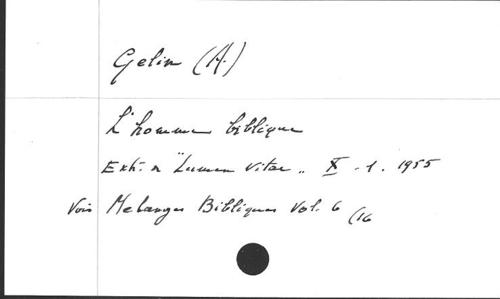 Gelin (A.)
L'homme biblique
Extr. de "Lumen Vitae" X - 1. 1955
Voir Melanges Bibliques Vol. 6 (16